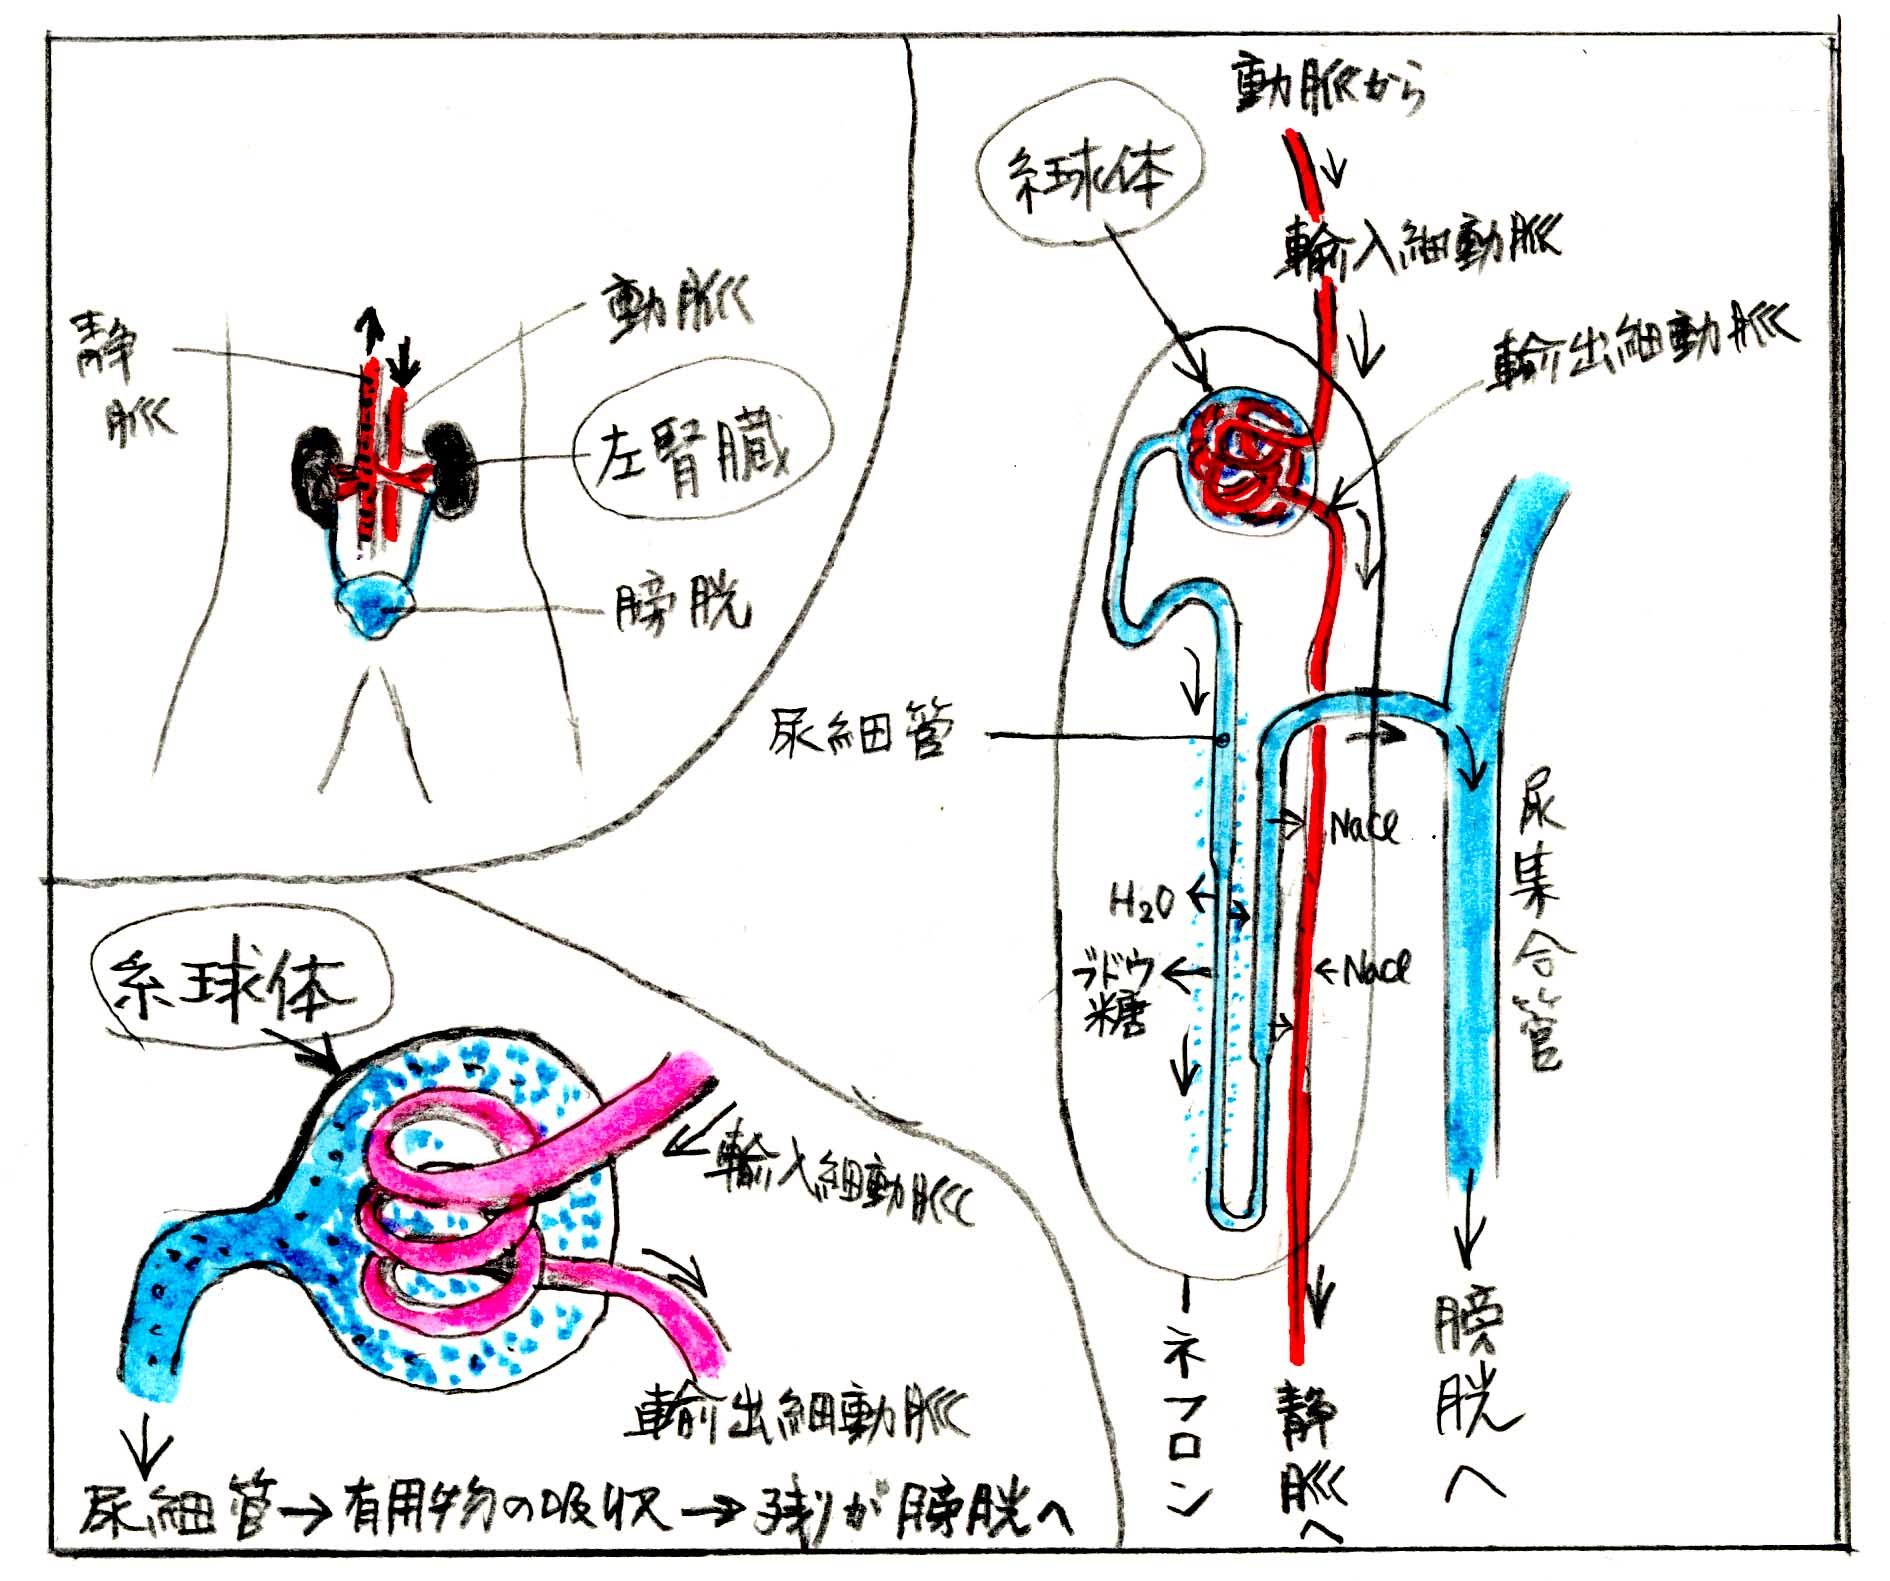 静脈
動脈
左腎臓
膀胱
糸球体
輸入細動脈
輸出細動脈
尿細管→有用物の吸収→残りが膀胱へ
動脈から
糸球体
輸入細動脈
輸出細動脈
尿細管
NaCl
H₂O
ブドウ
糖
←NaCl
尿集合管
ネフロン
静脈へ
膀胱へ